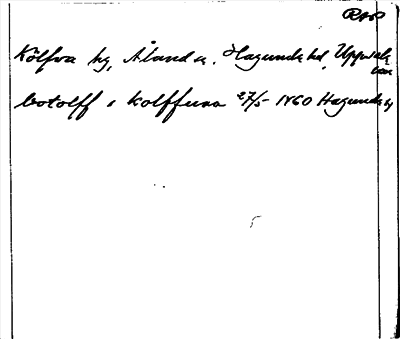 Kölfva by, Åland s. Hagunda hd, Uppsala
län
botolff i kolffuua 27/5 1460 Hagunda